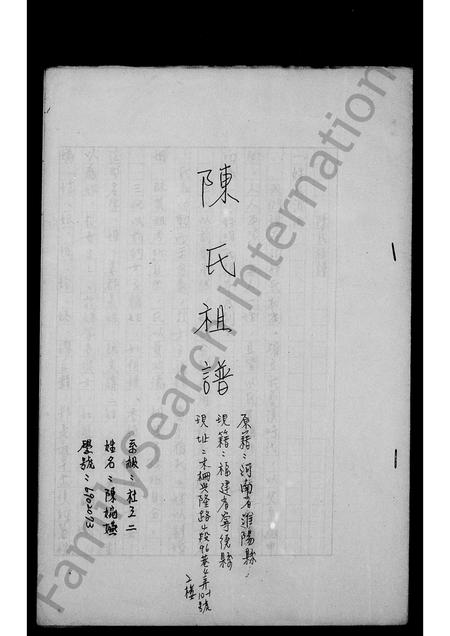 陳氏祖譜
原籍：河南省淮陽縣
現籍：福建省寧德縣
現址：木柵興隆路4段96巷4弄10號
2樓
系級：社工二
姓名：陳婉
學號：6902093
FamilySearch International